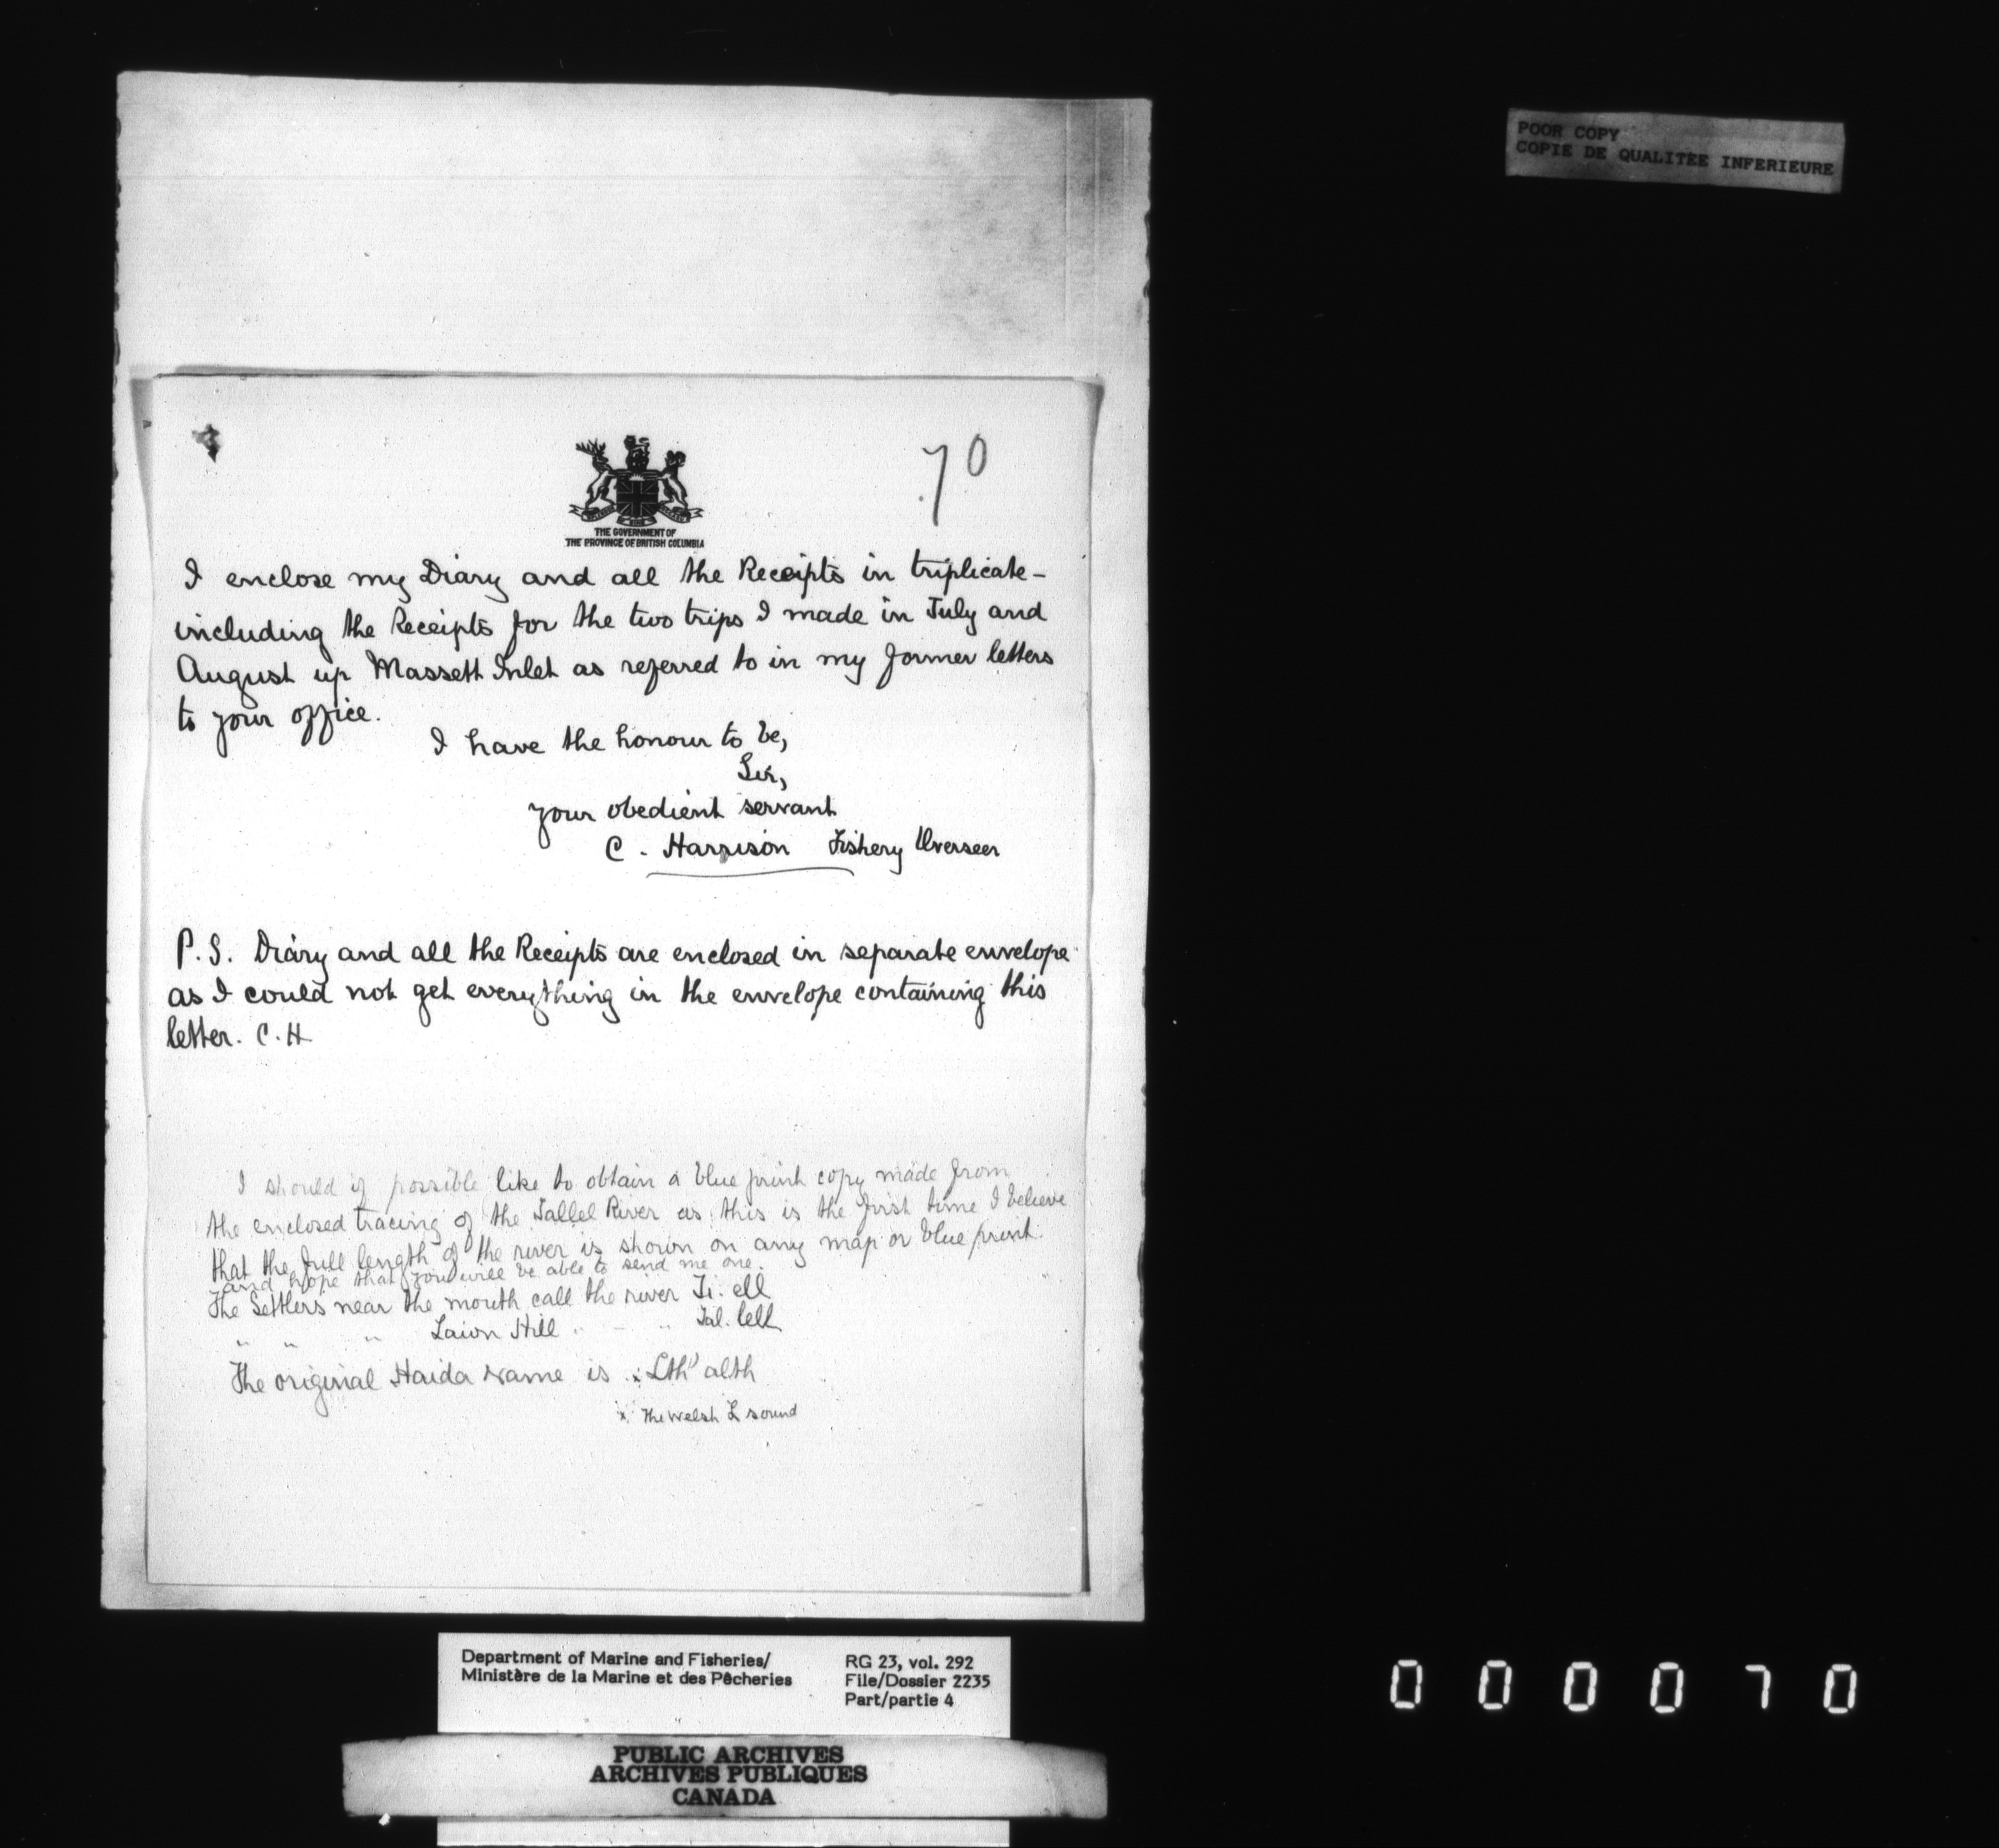 POOR COPY
COPIE DE QUALITÉE INFERIEURE
70
THE GOVERNMENT OF
THE PROVINCE OF BRITISH COLUMBIA
I enclose my Diary and all the Receipts in triplicate -
including the Receipts for the two trips I made in July and
August up Massett Inlet as referred to in my former letters
to your office.
I have the honour to be,
Sir,
your obedient servant
C. Harrison Fishery Overseer
P.S. Diary and all the Receipts are enclosed in separate envelope
as I could not get everything in the envelope containing this
letter. C.H
I should if possible like to obtain a blue print copy made from
the enclosed tracing of the Tallel River as this is the first time I believe
that the full length of the river is shown on any map or blue print.
and hope that you will be able to send me one.
The Settlers near the mouth call the river Ti. ell
" " " Laion Hill " " Tal. lell
The original Haida Name is x Lth" alth
x The Welsh L sound
Department of Marine and Fisheries/
Ministère de la Marine et des Pêcheries
RG 23, vol. 292
File/Dossier 2235
Part/partie 4
PUBLIC ARCHIVES
ARCHIVES PUBLIQUES
CANADA
000070